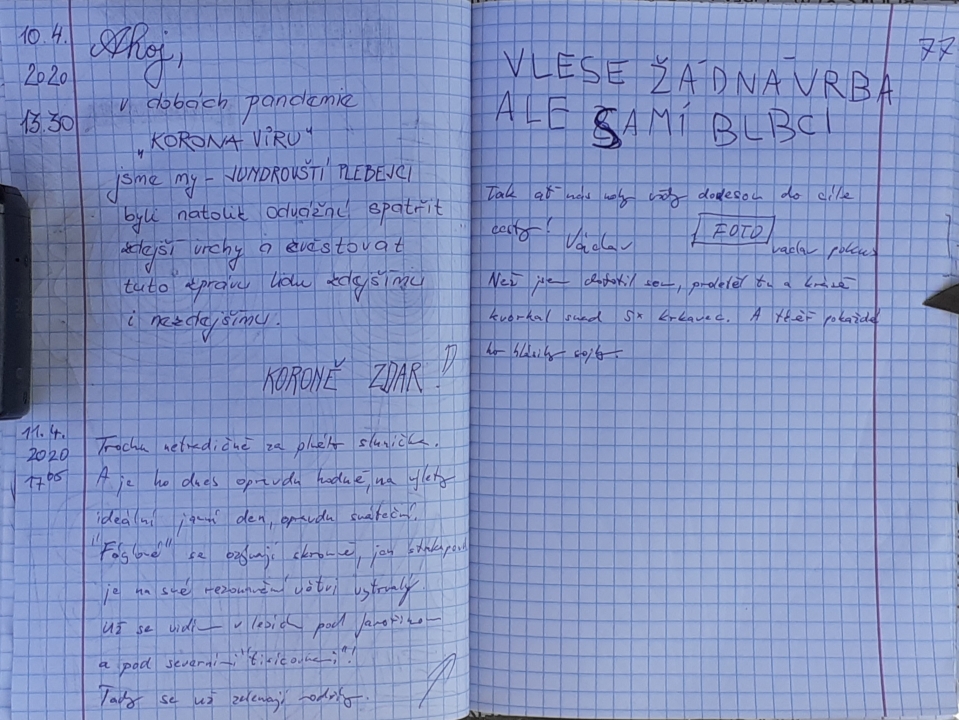 10.4.
2020
13.30
Ahoj,
v dobách pandemie
„KORONA VÍRU"
jsme my - JUNDROVŠTÍ PLEBEJCI
byli natolik odvážní spatřit
zdejší vrchy a zvěstovat
tuto zprávu lidu zdejšímu
i nezdejšímu.
KORONĚ ZDAR!
11.4.
2020
17⁰⁵
Trochu netradičně za sluníčka.
A je ho dnes opravdu hodně, na výlety
ideální jarní den, opravdu sváteční.
se ozývají skromně, jen
je na své rezonanční větvi vytrvalý
Už se vidím v lesích pod Javořinou
a pod severními "tisícovkami"!
Tady se už zelenají
77
V LESE ŽÁDNÁ VRBA
ALE SAMÍ BLBCI
Tak ať nás nohy vždy donesou do cíle
cesty! Václav
FOTO
václav
Než jsem sem, proletěl tu a krásně
kvorkal snad 5x krkavec. A téměř pokaždé
ho hlásily sojky.